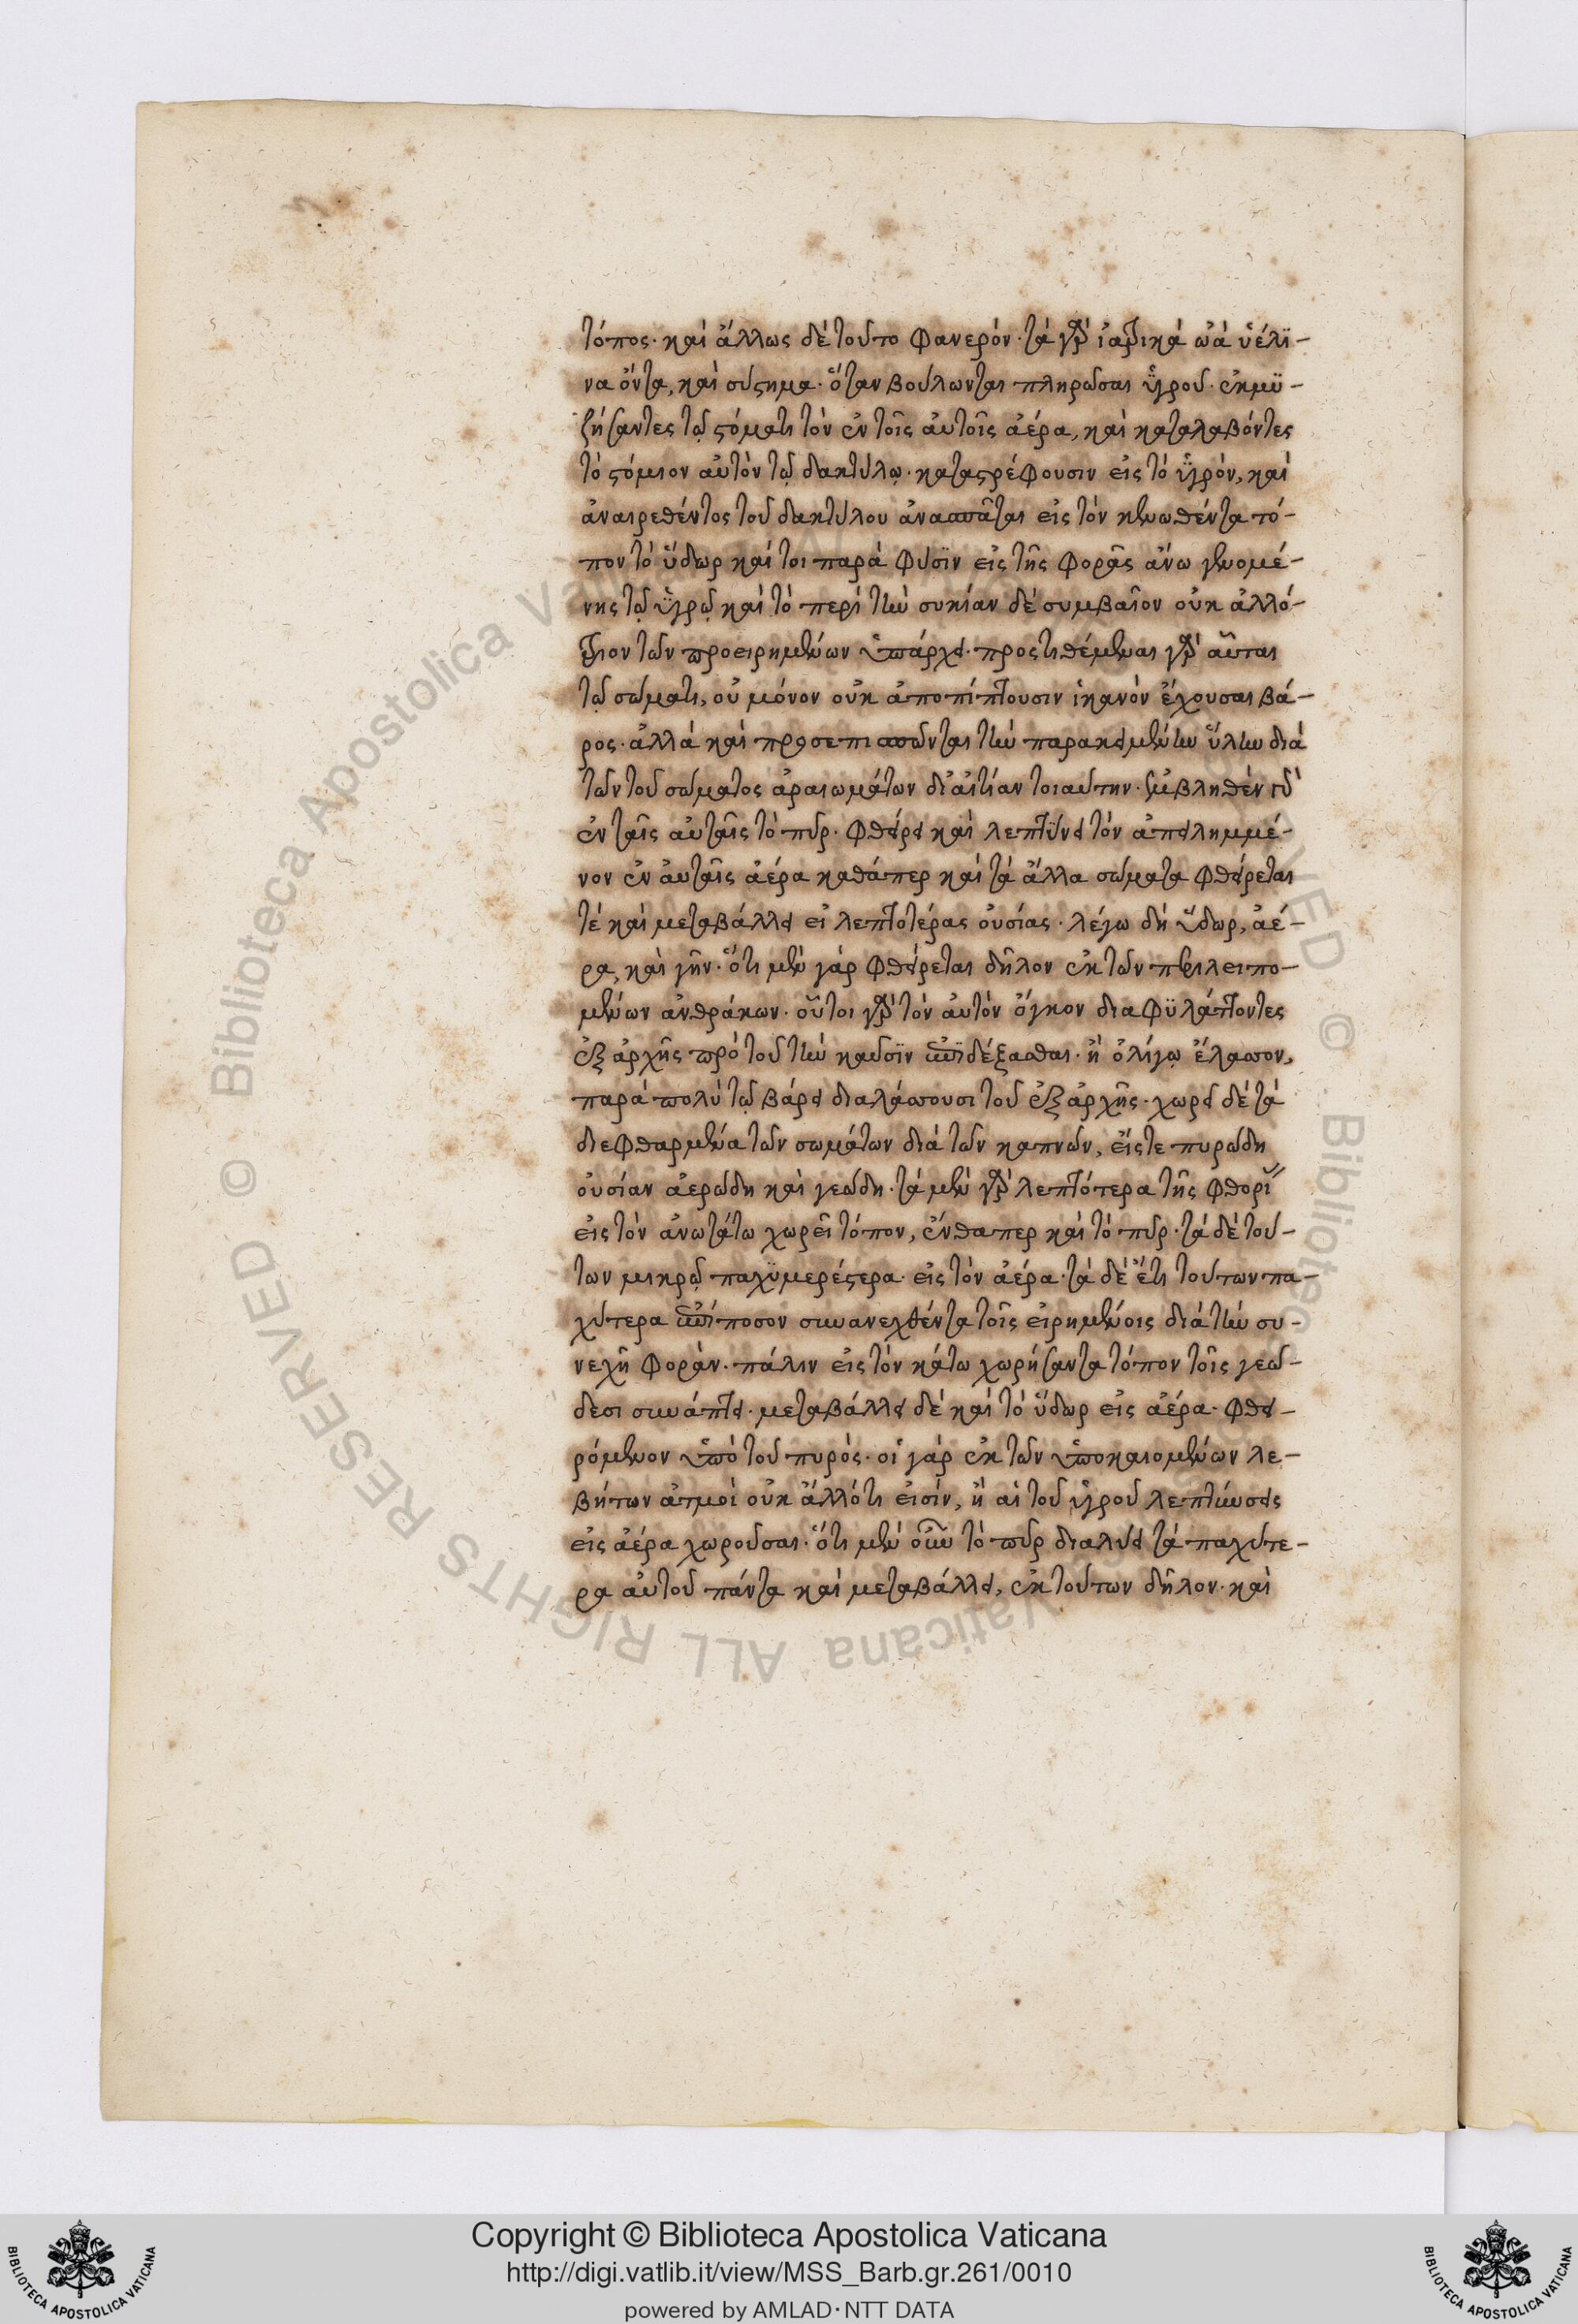 τόπος· καὶ ἄλλως δὲ τοῦτο φανερόν· τὰ γὰρ ἰατρικὰ ὠὰ ὑέλϊ-
να ὄντα, καὶ σύστημα· ὅταν βούλωνται πληρῶσαι ὑγροῦ· ἐκμϋ-
ζήσαντες τῷ στόματι τὸν ἐν τοῖς αὐτοῖς ἀέρα, καὶ καταλαβόντες
τὸ στόμιον αὐτὸν τῷ δακτύλῳ· καταστρέφουσιν εἰς τὸ ὑγρόν, καὶ
ἀναιρεθέντος τοῦ δακτύλου ἀνασπᾶται εἰς τὸν κενωθέντα τό-
πον τὸ ὕδωρ καί τοι παρὰ φύσϊν εἰς τῆς φορᾶς ἄνω γενομέ-
νης τῷ ὑγρῷ καὶ τὸ περὶ τὴν συκίαν δὲ συμβαῖον οὐκ ἀλλό-
τριον τῶν προειρημένων ὑπάρχει· προστιθέμεναι γὰρ αὗται
τῷ σώματι, οὐ μόνον οὐκ ἀποπίπτουσιν ἱκανὸν ἔχουσαι βά-
ρος· ἀλλὰ καὶ προσεπισπῶνται τὴν παρακειμένην ὕλην διὰ
τῶν τοῦ σώματος ἀραιωμάτων δι᾽ αἰτίαν τοιαύτην· ἐμβληθὲν γὰρ
ἐν ταῖς αὐταῖς τὸ πῦρ· φθείρει καὶ λεπτύνει τὸν ἀπειλημμέ-
νον ἐν αὐταῖς ἀέρα καθάπερ καὶ τὰ ἄλλα σώματα φθείρεται
τὲ καὶ μεταβάλλει εἰ λεπτοτέρας οὐσίας· λέγω δὴ ὕδωρ, ἀέ-
ρα, καὶ γῆν· ὅτι μὲν γὰρ φθείρεται δῆλον ἐκ τῶν περιλειπο-
μένων ἀνθράκων· οὗτοι γὰρ τὸν αὐτὸν ὄγκον διαφϋλάττοντες
ἐξ ἀρχῆς πρὸ τοῦ τὴν καῦσϊν ἐπιδέξασθαι· ἢ ὀλίγῳ ἔλασσον,
παρὰ πολὺ τῷ βάρει διαλάσσουσι τοῦ ἐξ ἀρχῆς· χωρεῖ δὲ τὰ
διεφθαρμένα τῶν σωμάτων διὰ τῶν καπνῶν, εἴς τε πυρώδη
οὐσίαν ἀερώδη καὶ γεώδη· τὰ μὲν γὰρ λεπτότερα τῆς φθορᾶς
εἰς τὸν ἀνωτάτω χωρεῖ τόπον, ἔνθαπερ καὶ τὸ πῦρ· τὰ δὲ τού-
των μικρῷ παχϋμερέστερα· εἰς τὸν ἀέρα· τὰ δὲ ἔτι τούτων πα-
χύτερα ἐπίποσον συνανεχθέντα τοῖς εἰρημένοις διὰ τὴν συ-
νεχῆ φοράν· πάλιν εἰς τὸν κάτω χωρήσαντα τόπον τοῖς γεώ-
δεσι συνάπτει· μεταβάλλει δὲ καὶ τὸ ὕδωρ εἰς ἀέρα· φθει-
ρόμενον ὑπὸ τοῦ πυρός· οἱ γὰρ ἐκ τῶν ὑποκαιομένων λε-
βήτων ἀτμοὶ οὐκ ἄλλότι εἰσίν, ἢ αἱ τοῦ ὑγροῦ λεπτύνσεις
εἰς ἀέρα χωροῦσαι· ὅτι μὲν οὖν τὸ πῦρ διαλύει τὰ παχύτε-
ρα αὐτοῦ πάντα καὶ μεταβάλλει, ἐκ τούτων δῆλον· καὶ
Copyright © Biblioteca Apostolica Vaticana
http://digi.vatlib.it/view/MSS_Barb.gr.261/0010
powered by AMLAD·NTT DATA